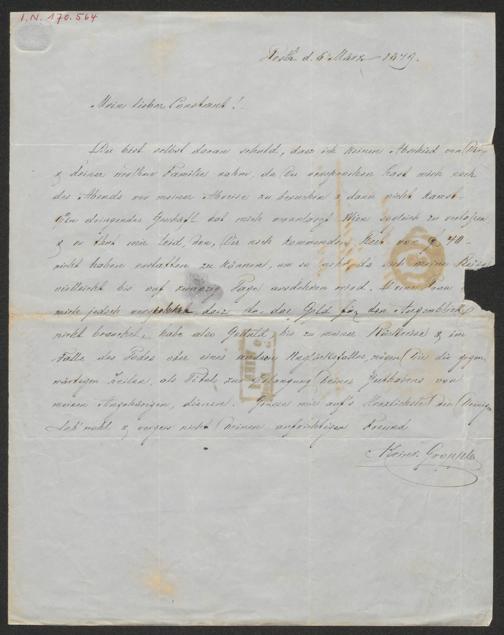 I.N. 170.564
d. 6 März 1879.
Mein lieber Constant!
Du bist selbst daran schuld, dass ich keinen Abschied von Dir
& deiner werthen Familie nahm, da Du versprochen hast mich noch
des Abends vor meiner Abreise zu besuchen & dann nicht kamst.
Ein dringendes Geschäft hat mich veranlasst Wien zu verlassen
& es thut mir leid, den Dir noch kommenden Rest von 40
nicht haben erstatten zu können, um so mehr als sich meine Reise
vielleicht bis auf zwanzig Tage ausdehnen wird.
mich jedoch dass du das Geld für den Augenblick
nicht brauchst, habe also Geduld bis zu meiner Rückreise & im
Falle des Todes oder eines andern Unglücksfalles, mögen Dir die gegen-
wärtigen Zeilen, als Titel zur Erlangung Deines Guthabens von
meinen Angehörigen, dienen. Grüsse mir auf's Herzlichste den Deinigen
Leb' wohl & vergess nicht Deinen aufrichtigen Freund
Heinr.